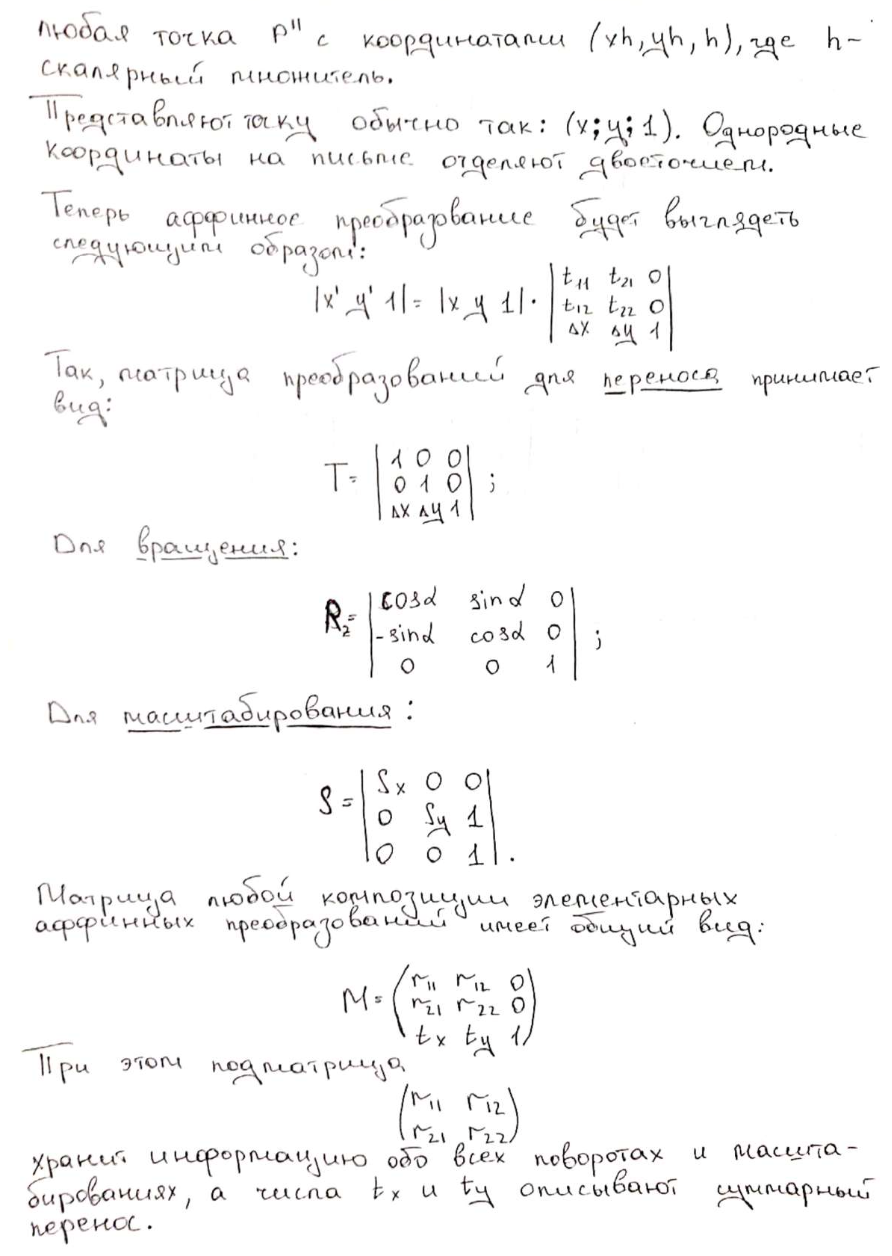 любая точка P'' с координатами (xh, yh, h), где h –
скалярный множитель.
Представляют точку обычно так: (x; y; 1). Однородные
координаты на письме отделяют двоеточием.
Теперь аффинное преобразование будет выглядеть
следующим образом:
|x' y' 1| = |x y 1| · | t₁₁ t₂₁ 0 |
| t₁₂ t₂₂ 0 |
| Δx Δy 1 |
Так, матрица преобразований для переноса принимает
вид:
T = | 1 0 0 |
| 0 1 0 | ;
| Δx Δy 1 |
Для вращения:
R_z = | cosα sinα 0 |
| -sinα cosα 0 | ;
| 0 0 1 |
Для масштабирования:
S = | Sx 0 0 |
| 0 Sy 1 |
| 0 0 1 | .
Матрица любой композиции элементарных
аффинных преобразований имеет общий вид:
M = ( r₁₁ r₁₂ 0 )
( r₂₁ r₂₂ 0 )
( tx ty 1 )
При этом подматрица
( r₁₁ r₁₂ )
( r₂₁ r₂₂ )
хранит информацию обо всех поворотах и масшта-
бированиях, а числа tx и ty описывают суммарный
перенос.